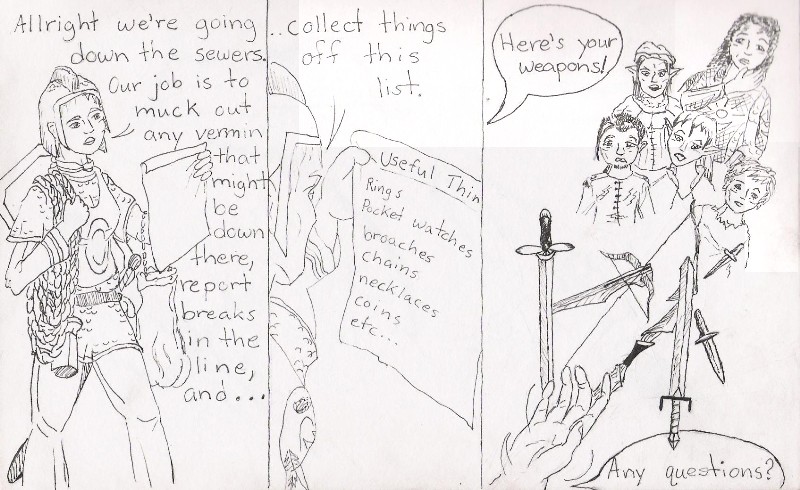 Allright we're going
down the sewers.
Our job is to
muck out
any vermin
that
might
be
down
there,
report
breaks
in the
line,
and...
..collect things
off this
list.
Useful Thin
Rings
Pocket watches
broaches
chains
necklaces
coins
etc...
Here's your
weapons!
Any questions?